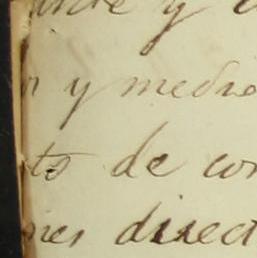 y
y medio
to de con
nes direct